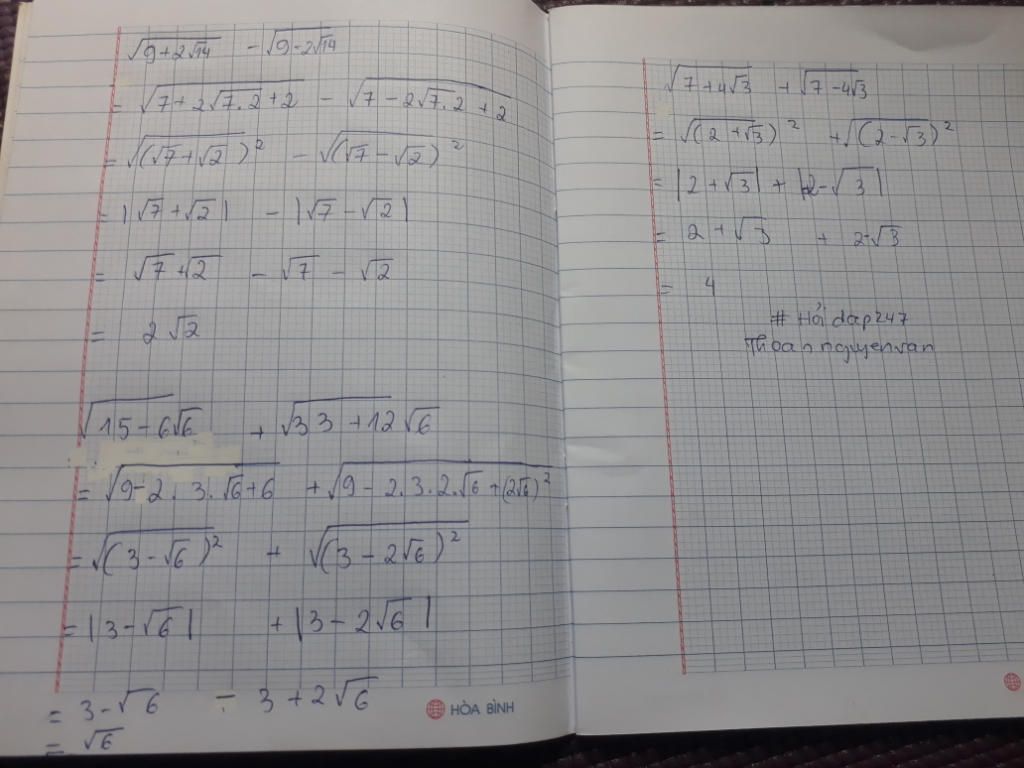 √(9+2√14) - √(9-2√14)
= √(7+2√7.2+2) - √(7-2√7.2+2)
= √((√7+√2)²) - √((√7-√2)²)
= |√7+√2| - |√7-√2|
= √7+√2 - √7-√2
= 2√2
√(15-6√6) + √(33+12√6)
= √(9-2.3.√6+6) + √(9-2.3.2.√6+(2√6)²)
= √((3-√6)²) + √((3-2√6)²)
= |3-√6| + |3-2√6|
= 3-√6 - 3+2√6
= √6
HÒA BÌNH
√(7+4√3) + √(7-4√3)
= √((2+√3)²) + √((2-√3)²)
= |2+√3| + |2-√3|
= 2+√3 + 2-√3
= 4
# Hỏi dap247
Thoan nguyenvan